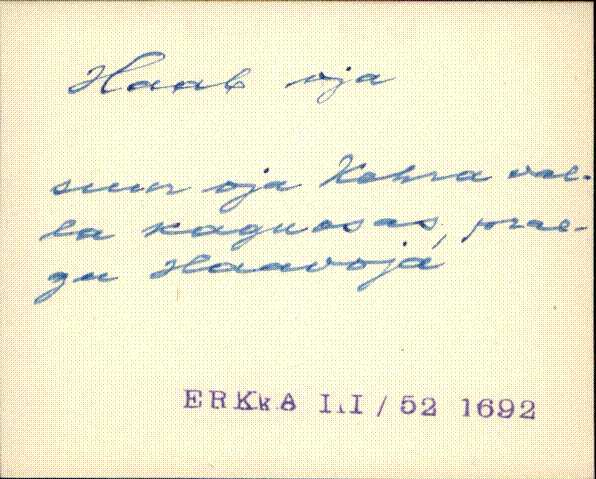 Haab oja
suur oja Kehra val-
la kaguosas, prae-
gu Haavoja
ERKkA III/52 1692